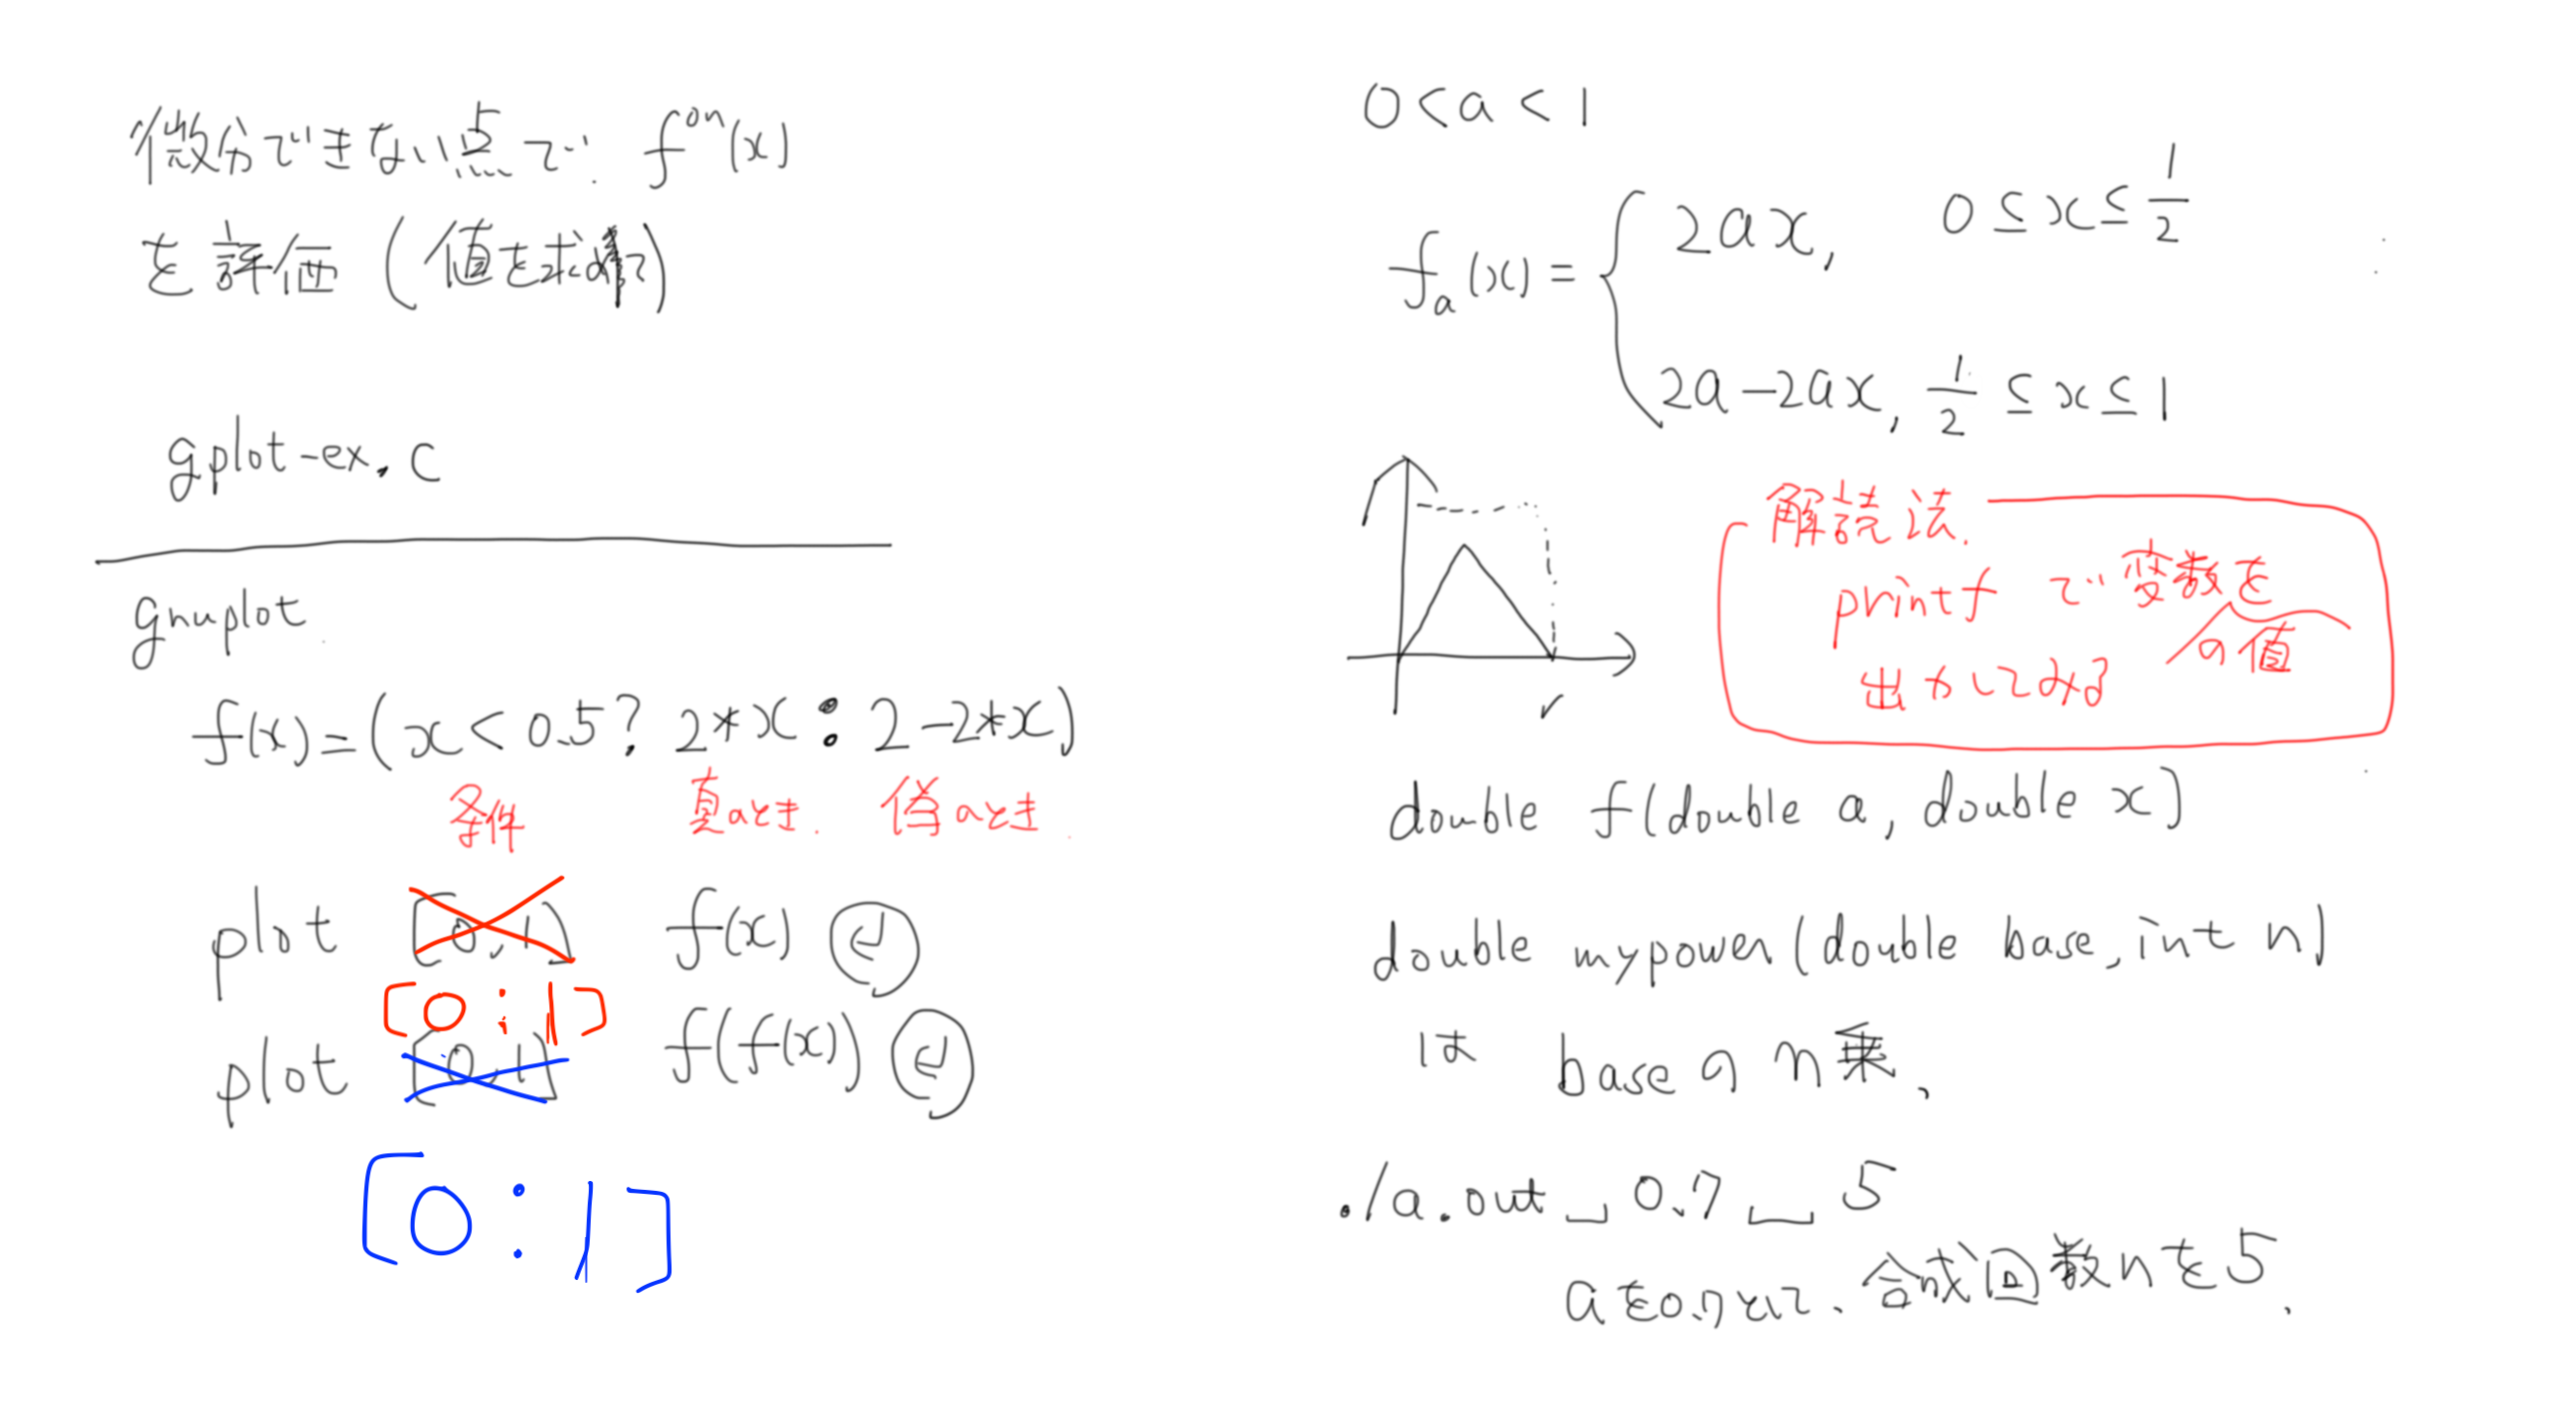 微分できない点で. f^{on}(x)
を評価 (値を求める)
gplot-ex.c
gnuplot
f(x)=(x<0.5? 2*x:2-2*x)
条件 真のとき. 偽のとき.
plot [0,1] f(x) ↵
[0:1]
plot [0,1] f(f(x)) ↵
[0:1]
0<a<1
f_a(x)= { 2ax, 0≤x≤1/2
2a-2ax, 1/2≤x≤1
解読法.
printf で変数を
の値
出力してみる
double f(double a, double x)
double mypower(double base, int n)
は base の n乗、
./a.out␣0.7␣5
aを0.7として、合成回数nを5、